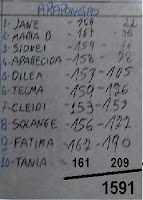 ARAPONGÃO
1-JANE -158 22
2-MARIA B - 167 35
3-SIDNEI -159 - 56
4-APARECIDA -158 - 78
5-DILEA -153 -105
6-TELMA -159 -126
7-CLEIDI -153 -153
8-SOLANGE -156 -172
9-FATIMA -167 -190
10-TANIA - 161 209
1591